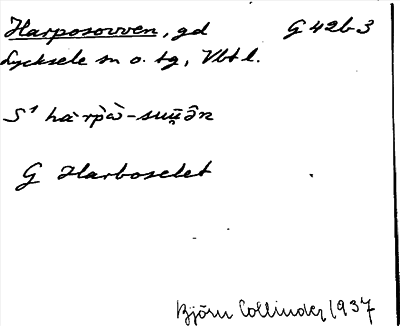 Harposovven, gd G 42b3
Lycksele sn o. tg, Vbtl.
S¹ hàrpὼ-suu̯ə̑n
G Harboselet
Björn Collinder 1937